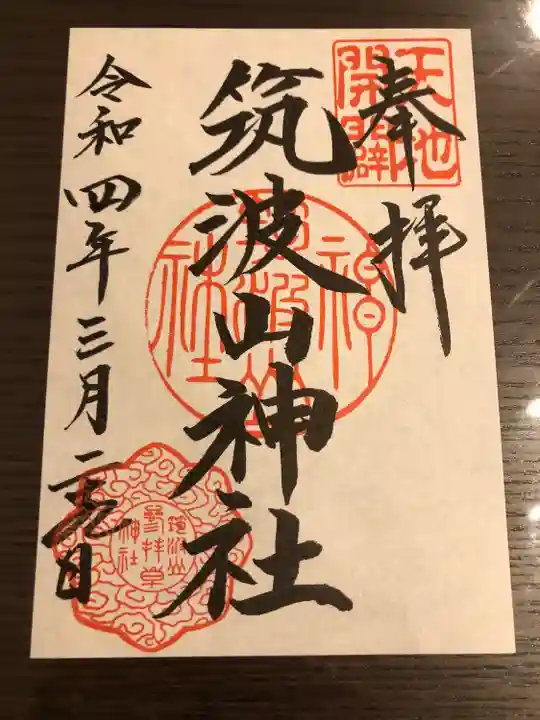 奉拝
天地
開闢
筑波山神社
筑波山
神社
令和四年三月二十九日
筑波山
参拝章
神社